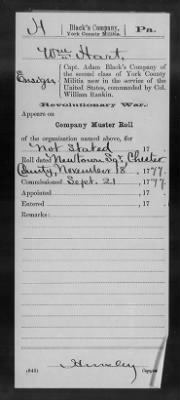 H
Black's Company,
York County Militia.
Pa.
Wm Hart,
Ensign,
Capt. Adam Black's Company of
the second class of York County
Militia now in the service of the
United States, commanded by Col.
William Rankin.
Revolutionary War.
Appears on
Company Muster Roll
of the organization named above, for
Not Stated, 17
Roll dated Newtown Sqr, Chester
County, November 18, 1777.
Commissioned Sept. 21, 1777.
Appointed, 17
Entered, 17
Remarks:
(645)
Copyist.